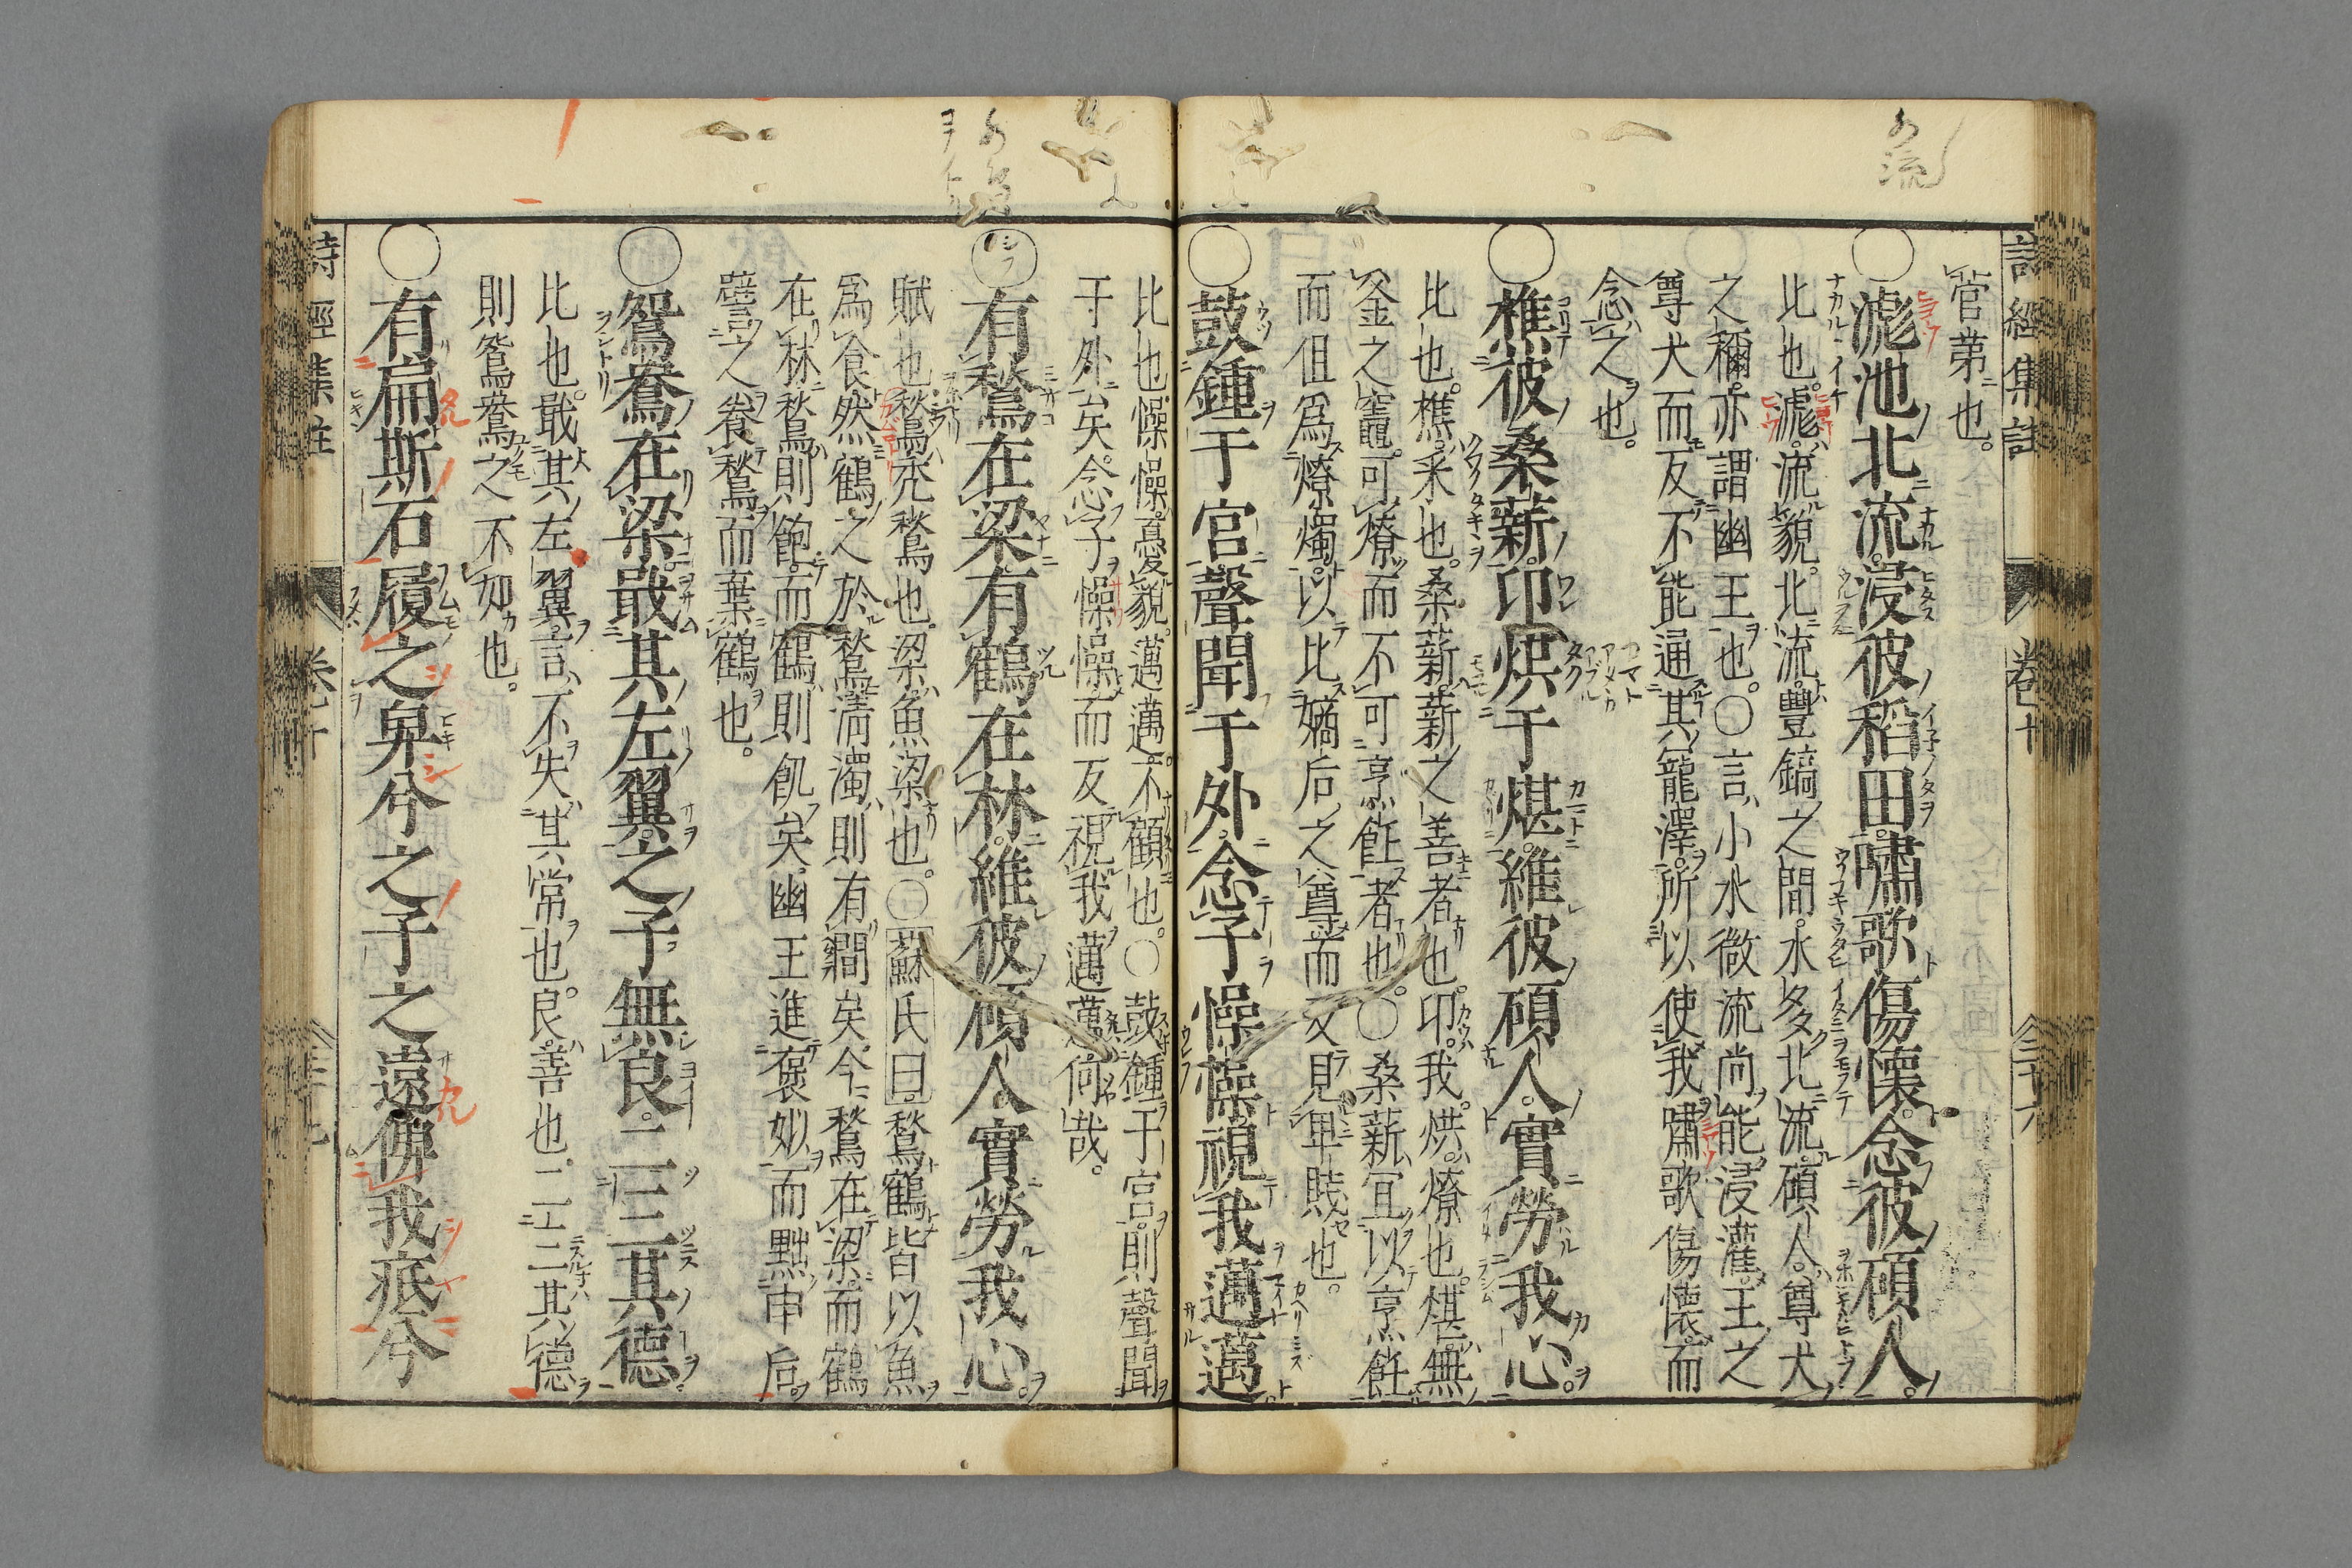 詩經集註 卷十
菅第也。
○滮池北流。浸彼稻田。嘯歌傷懷。念彼碩人。
比也。滮。流貌。北流。豐鎬之間。水多北流。碩人。尊大
之稱。亦謂幽王也。○言小水微流。尚能浸灌。王之
尊大。而反不能通其寵澤。所以使我嘯歌傷懷。而
念之也。
○樵彼桑薪。卬烘于煁。維彼碩人。實勞我心。
比也。樵。采也。桑薪。薪之善者也。卬。我。烘。燎也。煁。無
釜之竈。可燎而不可烹飪者也。○桑薪宜以烹飪。
而但爲燎燭。以比嫡后之尊。而反見卑賤也。
○鼓鍾于宮。聲聞于外。念子懆懆。視我邁邁。
比也。懆懆。憂貌。邁邁。不顧也。○鼓鍾于宮。則聲聞
于外矣。念子懆懆。而反視我邁邁。何哉。
○有鶖在梁。有鶴在林。維彼碩人。實勞我心。
賦也。鶖。禿鶖也。梁。魚梁也。○蘇氏曰。鶖鶴皆以魚
爲食。然鶴之於鶖。淸濁則有間矣。今鶖在梁。而鶴
在林。鶖則飽。而鶴則飢矣。幽王進褒姒。而黜申后。
譬之養鶖而棄鶴也。
○鴛鴦在梁。戢其左翼。之子無良。二三其德。
比也。戢其左翼。言不失其常也。良。善也。二三其德。
則鴛鴦之不如也。
○有扁斯石。履之卑兮。之子之遠。俾我疷兮
詩經集註 卷十